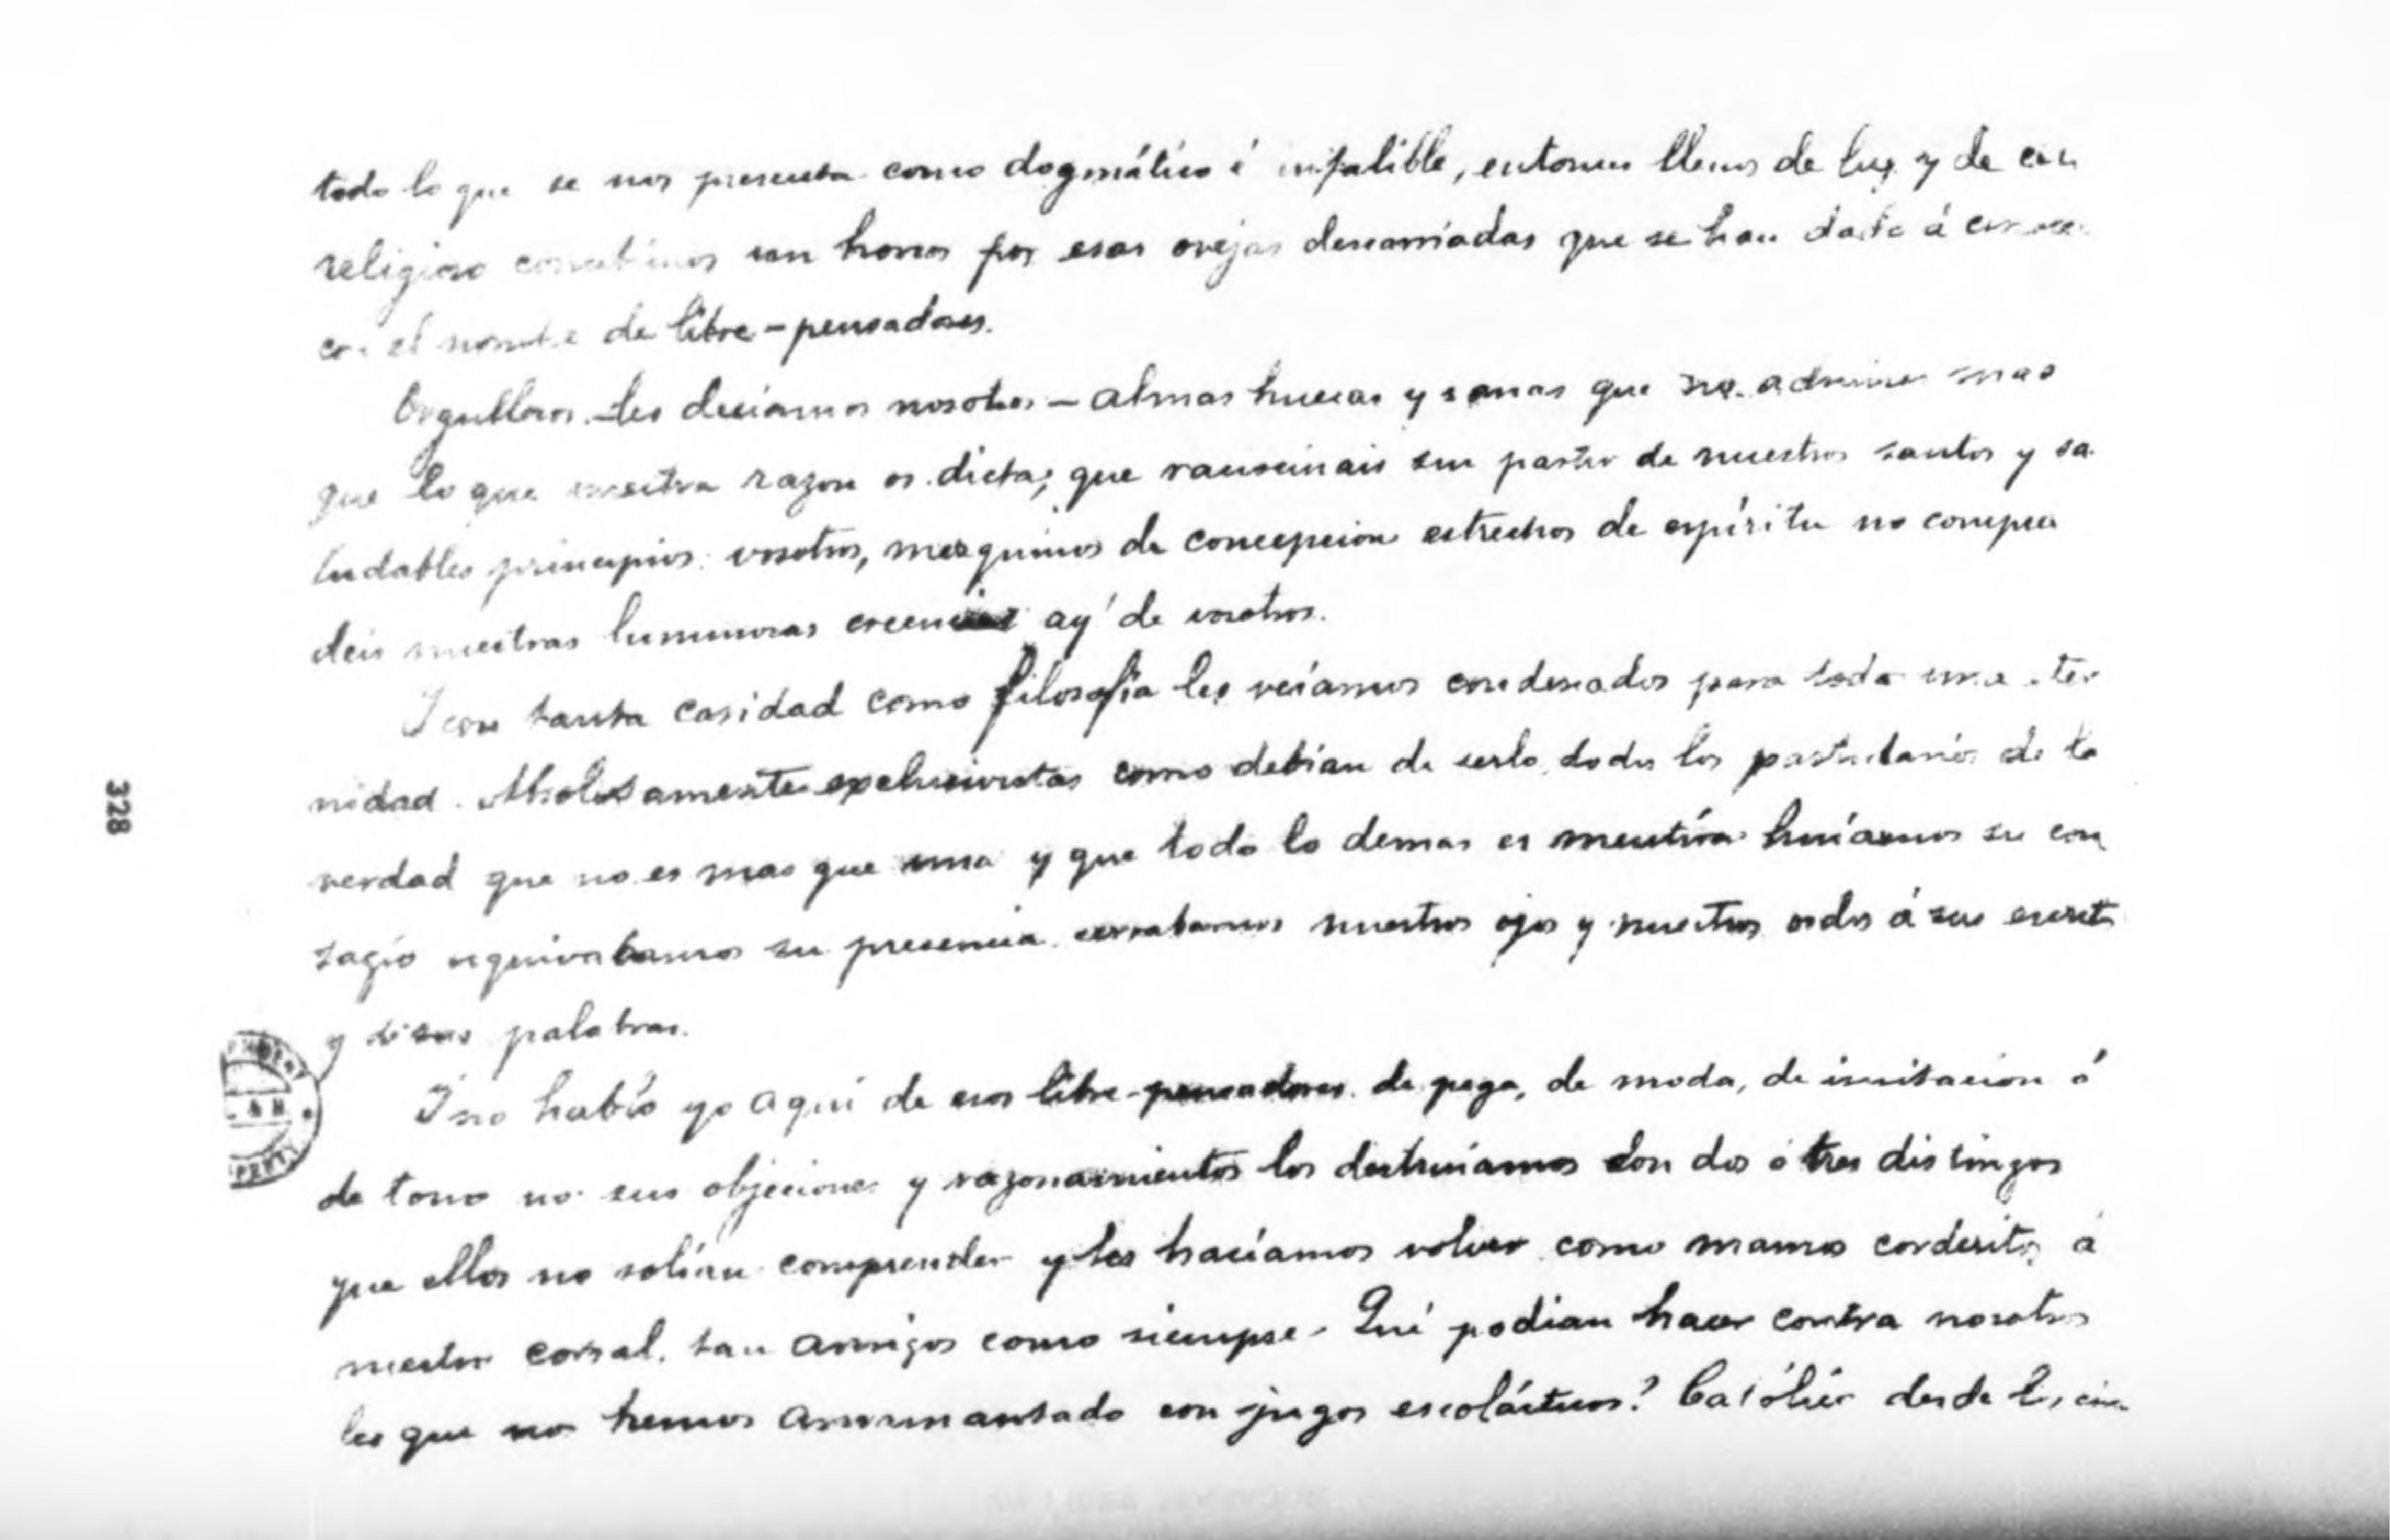 todo lo que se nos presenta como dogmático é infalible, entonces llenos de luz y de
religioso concebimos un horror por esas ovejas descarriadas que se han dado á conocer
con el nombre de libre-pensadores.
Orgullosos - les deciamos nosotros - almas huecas y vanas que no admiten mas
que lo que vuestra razon os dicta; que raciocinais sin partir de nuestros santos y sa
ludables principios: vosotros, mezquinos de concepcion estrechos de espíritu no compren
deis nuestras luminosas creencias ay' de vosotros.
I con tanta caridad como filosofía les veíamos condenados para toda una eter
nidad. Absolutamente exclusivistas como debian de serlo todos los partidarios de la
verdad que no es mas que una y que todo lo demas es mentira huíamos su con
tagio esquivabamos su presencia cerrabamos nuestros ojos y nuestros oidos á sus escritos
y á sus palabras.
I no hablo yo aquí de esos libre-pensadores de pega, de moda, de imitacion ó
de tono no sus objeciones y razonamientos los destruíamos con dos ó tres distingos
que ellos no solian comprender y les hacíamos volver como mansos corderitos á
nuestro corral, tan amigos como siempre. Qué podian hacer contra nosotros
los que no hemos amamantado con jugos escolásticos? Católico desde
328